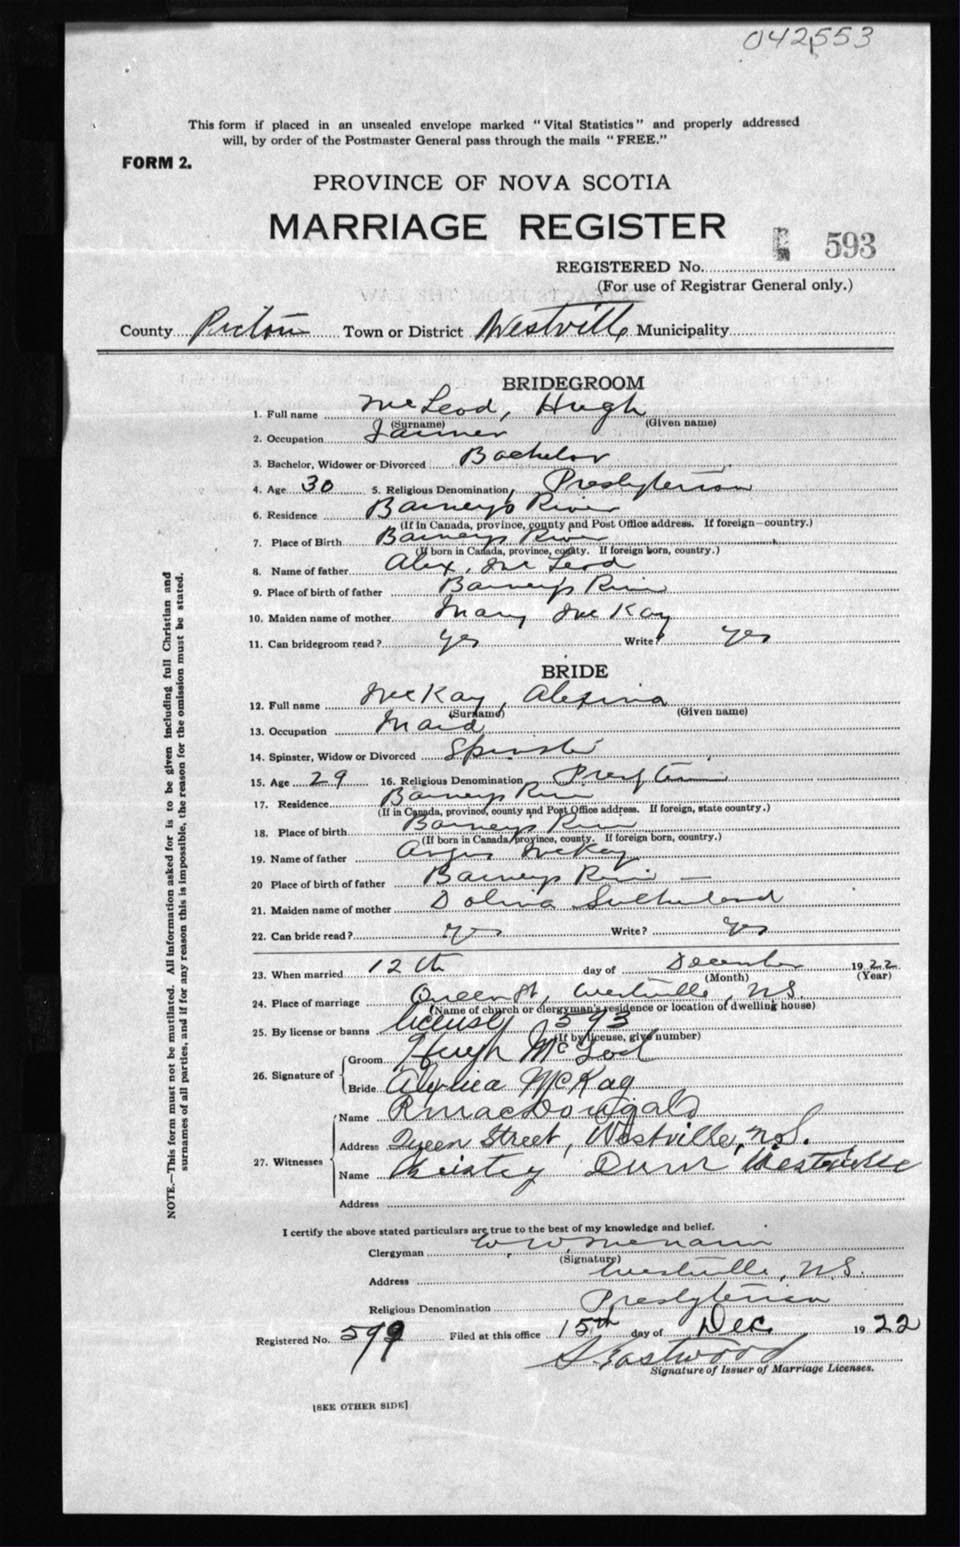 042553
This form if placed in an unsealed envelope marked "Vital Statistics" and properly addressed
will, by order of the Postmaster General pass through the mails "FREE."
FORM 2.
PROVINCE OF NOVA SCOTIA
MARRIAGE REGISTER
593
REGISTERED No.
(For use of Registrar General only.)
County Pictou Town or District Westville Municipality
BRIDEGROOM
1. Full name McLeod, Hugh
(Surname) (Given name)
2. Occupation Farmer
3. Bachelor, Widower or Divorced Bachelor
4. Age 30 5. Religious Denomination Presbyterian
6. Residence Barneys River
(If in Canada, province, county and Post Office address. If foreign—country.)
7. Place of Birth Barneys River
(If born in Canada, province, county. If foreign born, country.)
8. Name of father Alex. McLeod
9. Place of birth of father Barneys River
10. Maiden name of mother Mary McKay
11. Can bridegroom read? yes Write? yes
BRIDE
12. Full name McKay, Alexina
(Surname) (Given name)
13. Occupation Maid
14. Spinster, Widow or Divorced Spinster
15. Age 29 16. Religious Denomination Presbyterian
17. Residence Barneys River
(If in Canada, province, county and Post Office address. If foreign, state country.)
18. Place of birth Barneys River
(If born in Canada, province, county. If foreign born, country.)
19. Name of father Angus McKay
20 Place of birth of father Barneys River —
21. Maiden name of mother Dolina Sutherland
22. Can bride read? yes Write? yes
23. When married 12th day of December 1922
(Month) (Year)
24. Place of marriage Queen St, Westville, N.S.
(Name of church or clergyman's residence or location of dwelling house)
25. By license or banns license 593
(If by license, give number)
26. Signature of Groom Hugh McLeod
Bride Alexina McKay
27. Witnesses Name R MacDougald
Address Queen Street, Westville, N.S.
Name Christy Dunn Westville
Address
I certify the above stated particulars are true to the best of my knowledge and belief.
Clergyman
(Signature)
Address Westville, N.S.
Religious Denomination Presbyterian
Registered No. 599 Filed at this office 15th day of Dec 1922
S. Eastwood
Signature of Issuer of Marriage Licenses.
[SEE OTHER SIDE]
NOTE.—This form must not be mutilated. All information asked for is to be given including full Christian and
surnames of all parties, and if for any reason this is impossible, the reason for the omission must be stated.